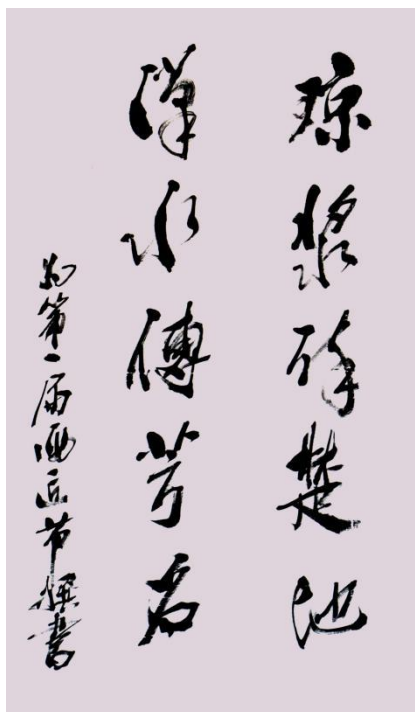 琼浆醉楚池
汉水传芳名
为第一届酒匠节撰书